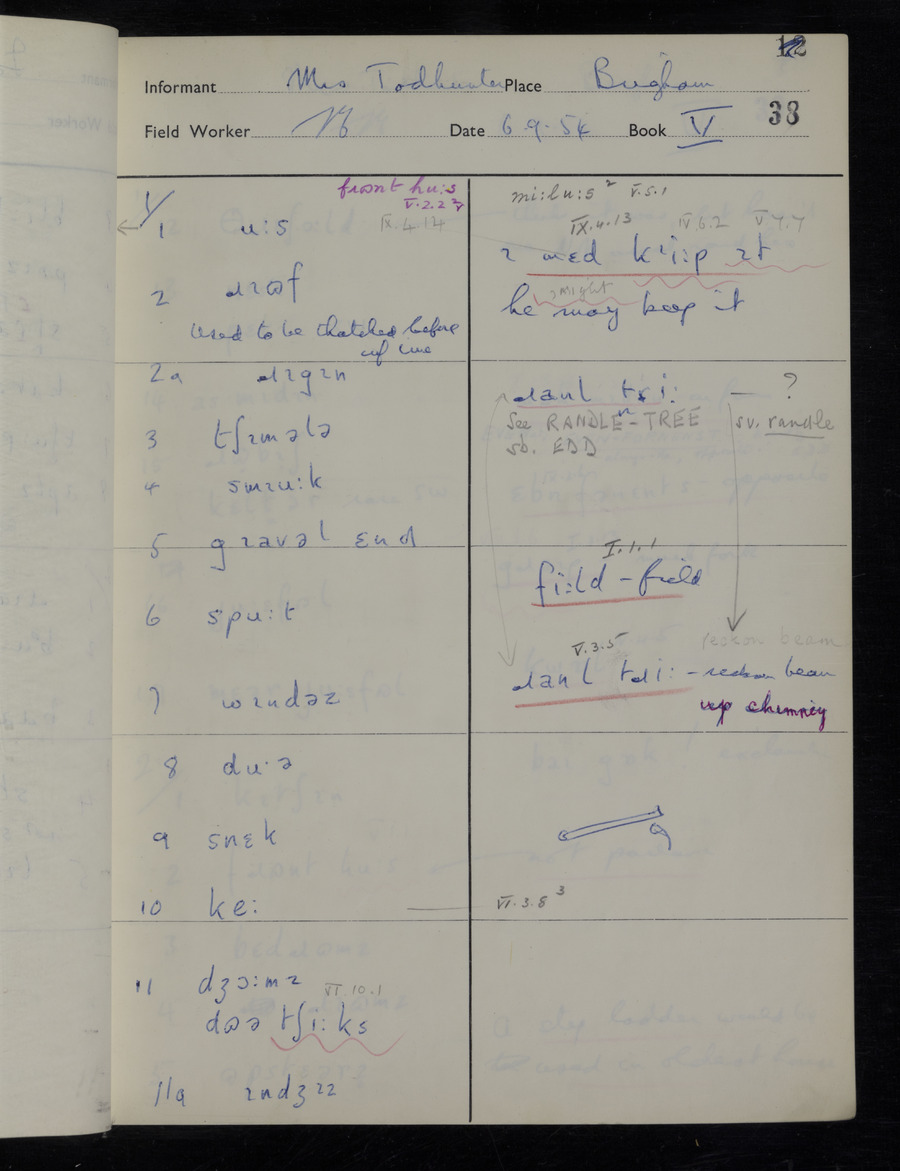 12
Informant Mrs Todhunter Place Brigham
38
Field Worker Date 6.9.54 Book V
frɷnt hu:s
V.2.2
IX.4.14
1 u:s
2 ɹɷf
Used to be thatched before
my time
2a ɹɪgɪn
3 tʃɪmələ
4 smɪu:k
5 gɪavəl ɛnd
6 spu:t
7 wɪndəz
8 du·ə
9 snɛk
10 ke:
11 dʒɔ:mz
VI.10.1
dɷə tʃi:ks
11a ɪndʒɪz
mi:lu:s² V.5.1
IX.4.13 IV.6.2 V.7.7
mɛd kɪi:p ɪt
might
he may keep it
ɹanl tɹi: — ?
See RANDLE-TREE sv. randle
sb. EDD
I.1.1
fi:ld - field
V.3.5 reckon beam
ɹanl tɹi: - reckon beam
up chimney
VI.3.8³